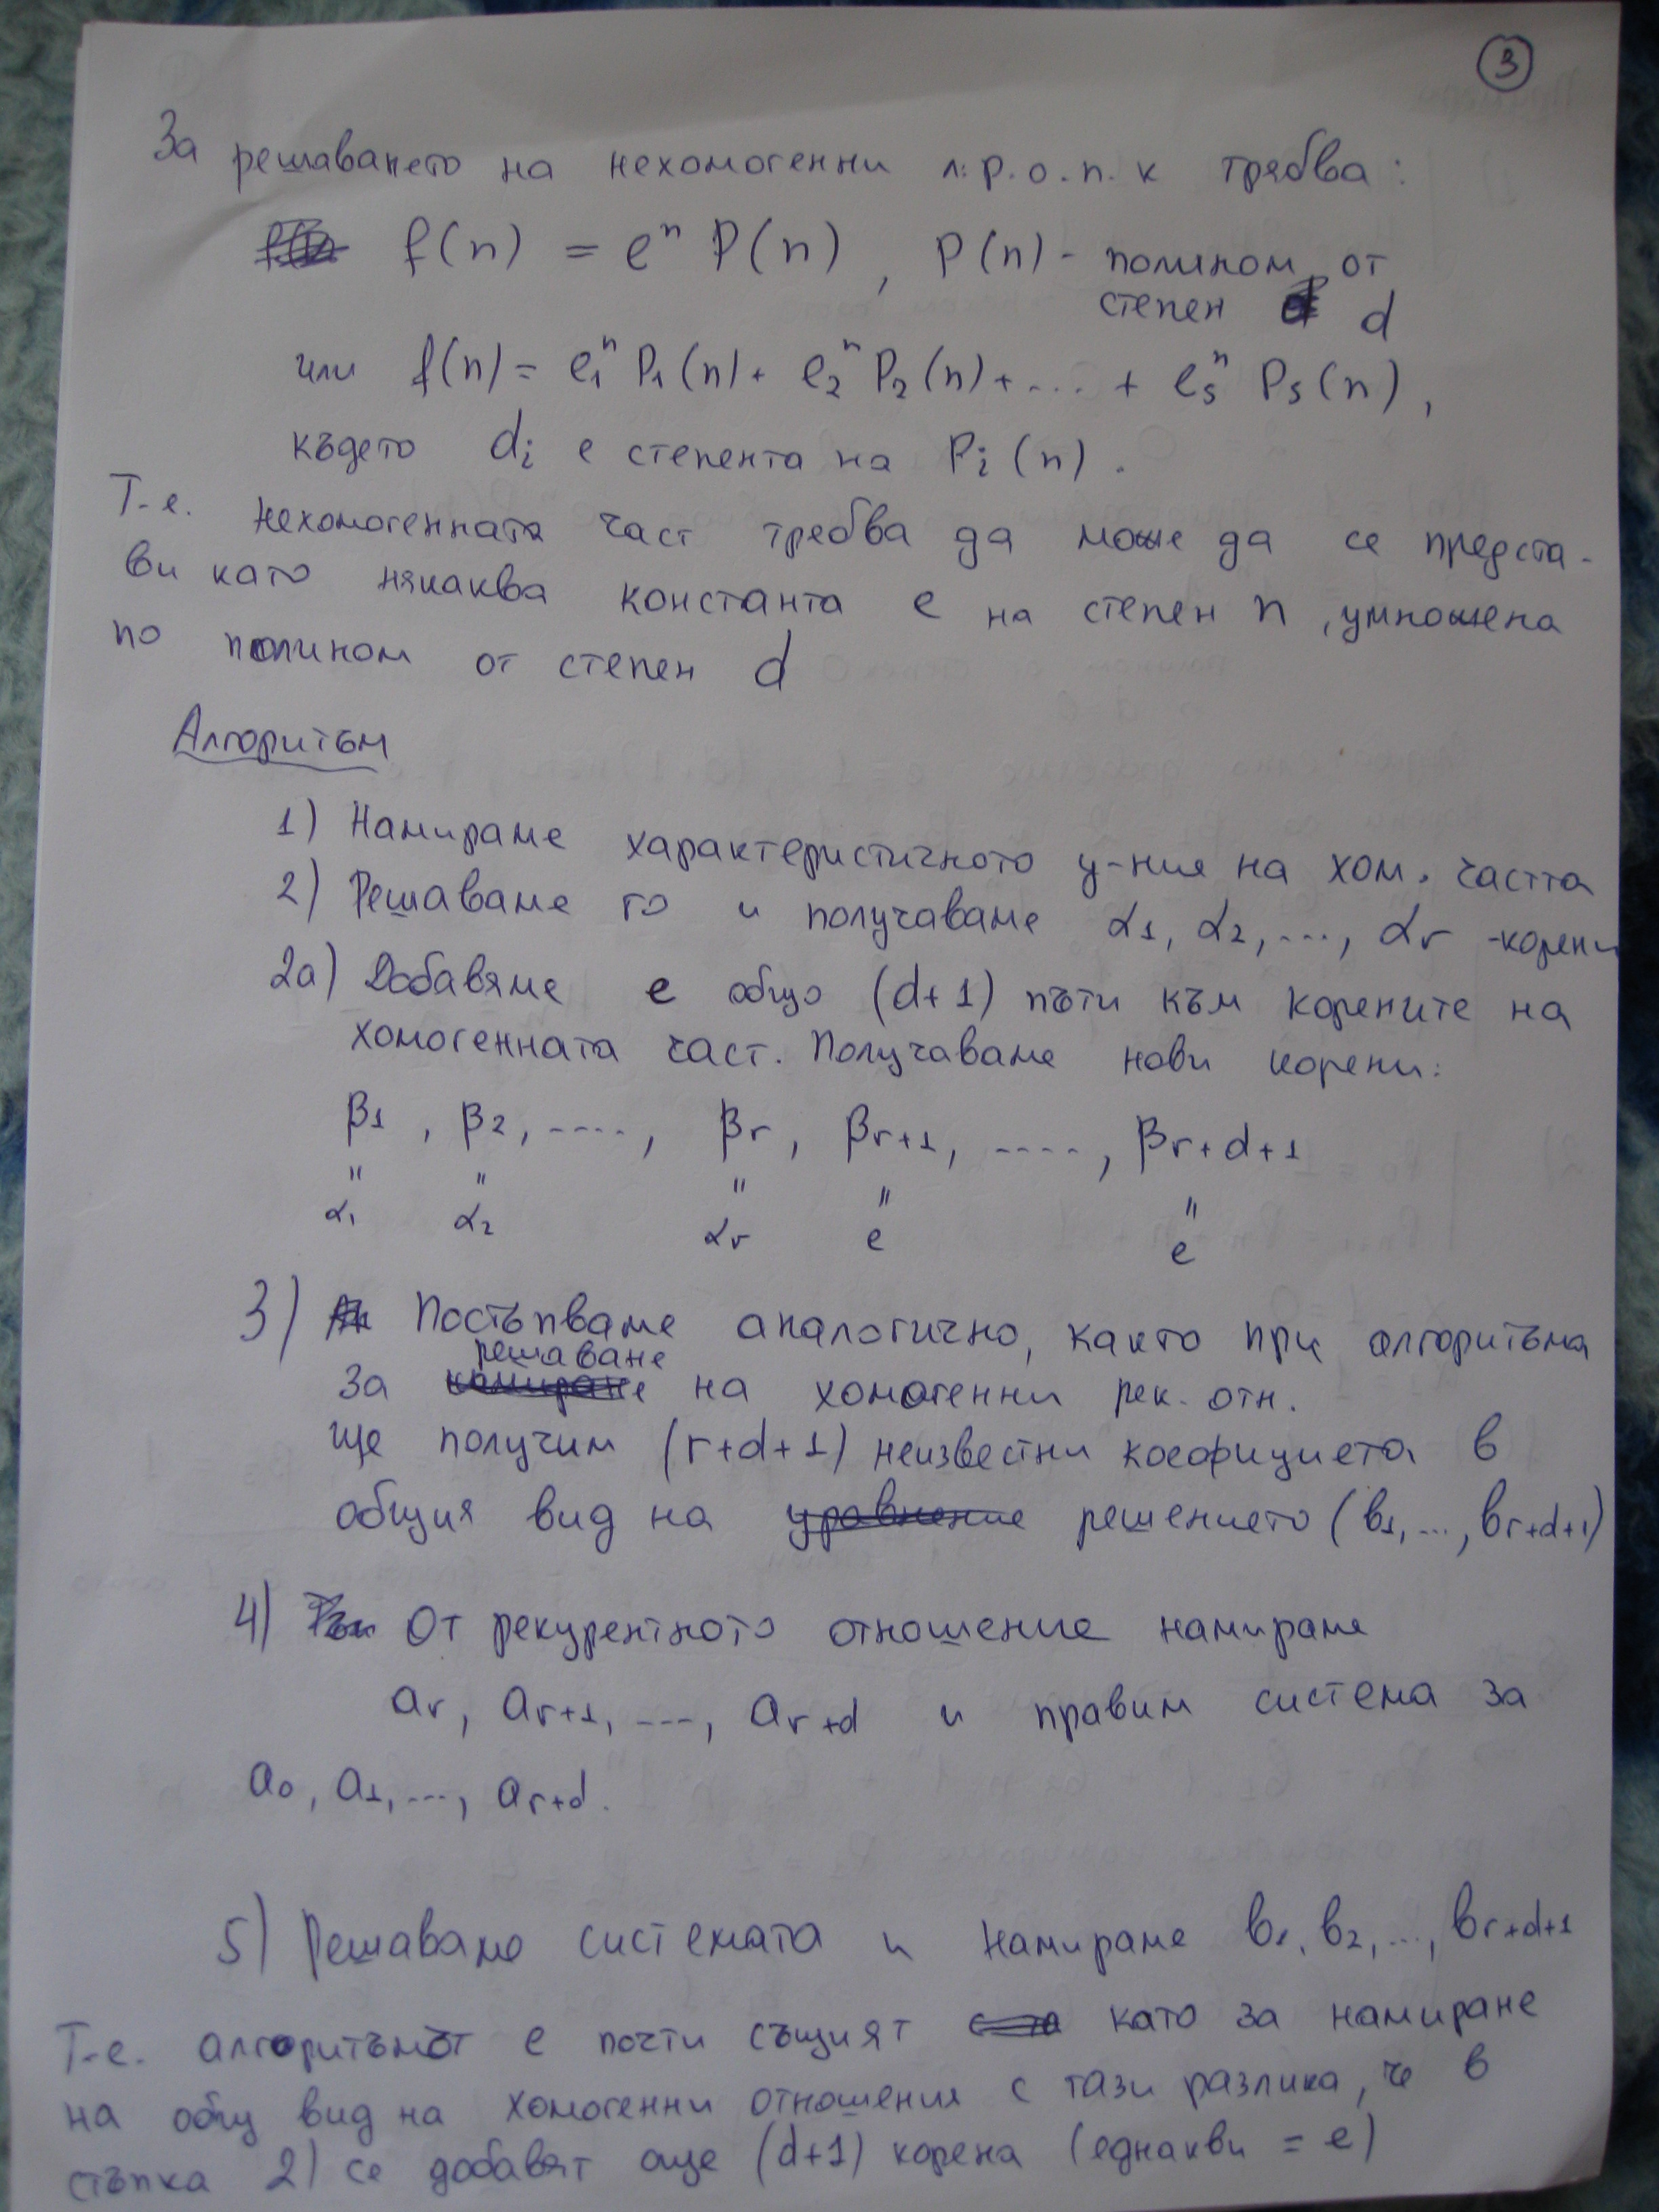 3
За решаването на нехомогенни л.р.о.п.к трябва:
f(n) = eⁿ P(n), P(n) - полином от
степен d
или f(n) = e₁ⁿ P₁(n) + e₂ⁿ P₂(n) + .... + eₛⁿ Pₛ(n),
където dᵢ е степента на Pᵢ(n).
Т.е. нехомогенната част требва да може да се предста-
ви като някаква константа e на степен n, умножена
по полином от степен d
Алгоритъм
1) Намираме характеристичното у-ние на хом. частта
2) Решаваме го и получаваме α₁, α₂, ..., αᵣ - корени
2а) Добавяме e общо (d+1) пъти към корените на
хомогенната част. Получаваме нови корени:
β₁, β₂, ...., βᵣ, βᵣ₊₁, ...., βr+d+1
" " " " "
α₁ α₂ αᵣ e e
3) Постъпваме аналогично, както при алгоритъма
за решаване на хомогенни рек. отн.
Ще получим (r+d+1) неизвестни коефициета в
общия вид на решението (b₁, ..., br+d+1)
4) От рекурентното отношение намираме
aᵣ, aᵣ₊₁, ...., ar+d и правим система за
a₀, a₁, ..., ar+d.
5) Решаваме системата и намираме b₁, b₂, ..., br+d+1
Т.е. алгоритъмът е почти същият като за намиране
на общ вид на хомогенни отношения с тази разлика, че в
стъпка 2) се добавят още (d+1) корена (еднакви = e)